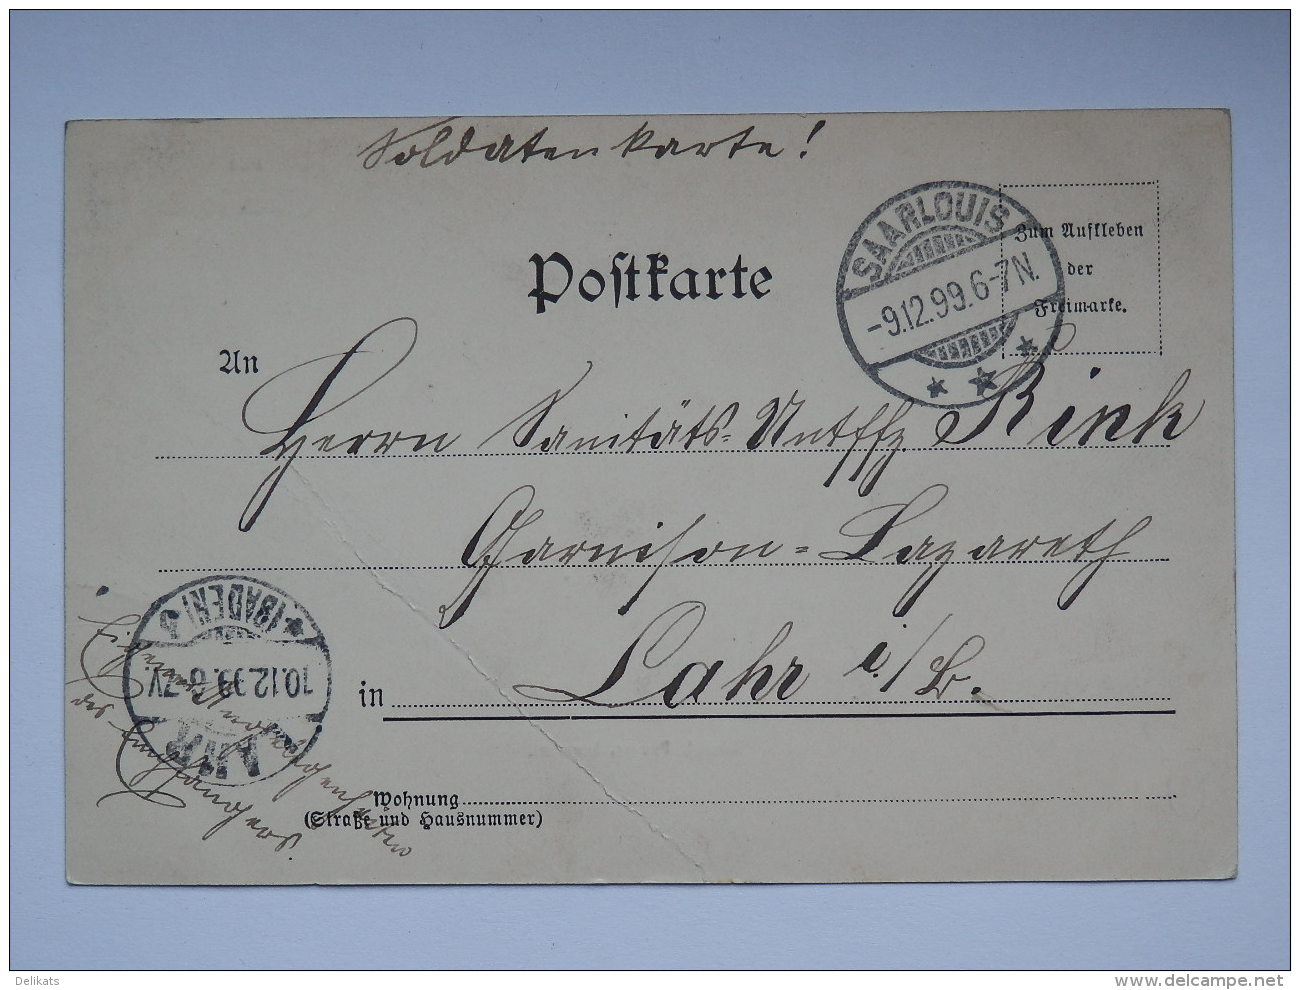 Soldatenkarte!
Postkarte
SAARLOUIS
-9.12.99.6-7N.
Zum Aufkleben
der
Freimarke.
An
Herrn Sanitäts-Untffz. Rink
Garnison-Lazareth
in Lahr i/B.
Wohnung
(Straße und Hausnummer)
LAHR
10.12.99.6-7V.
*(BADEN)
Eigene Angelegenheiten
des Empfängers.
Delikats
www.delcampe.net